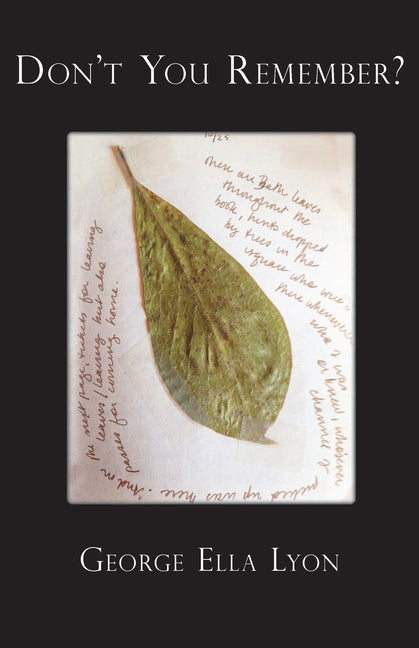 DON'T YOU REMEMBER?
10/25
These are Bath leaves
throughout the
book, hints dropped
by trees in the
square who were
there whenever
who I was
or knew, whoever
chanced to
picked up was here. And on
the next page, tickets for leaving
leaves/leaving but also
passes for coming home.
GEORGE ELLA LYON